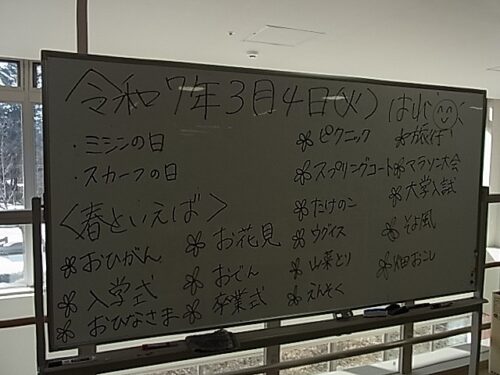 令和7年3月4日(火) はれ
・ミシンの日
・スカーフの日
<春といえば>
おひがん
入学式
おひなさま
お花見
おでん
卒業式
ピクニック
スプリングコート
たけのこ
ウグイス
山菜とり
えんそく
旅行
マラソン大会
大学入試
そよ風
畑おこし